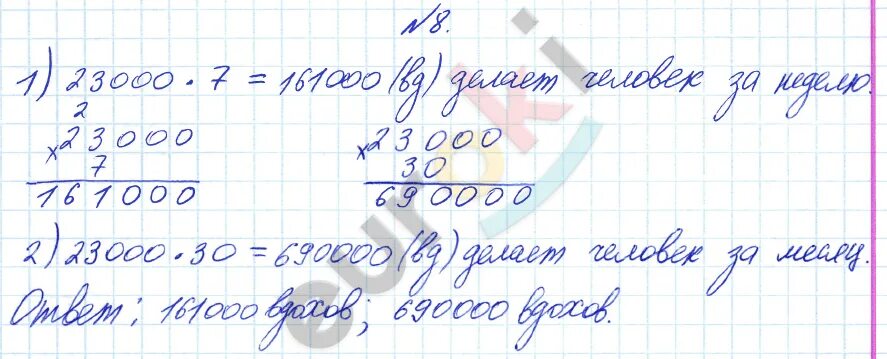 №8.
1) 23000 • 7 = 161000 (вд) делает человек за неделю.
2
× 23000   × 23000
7   30
161000   690000
2) 23000 • 30 = 690000 (вд) делает человек за месяц.
Ответ: 161000 вдохов; 690000 вдохов.
euroki